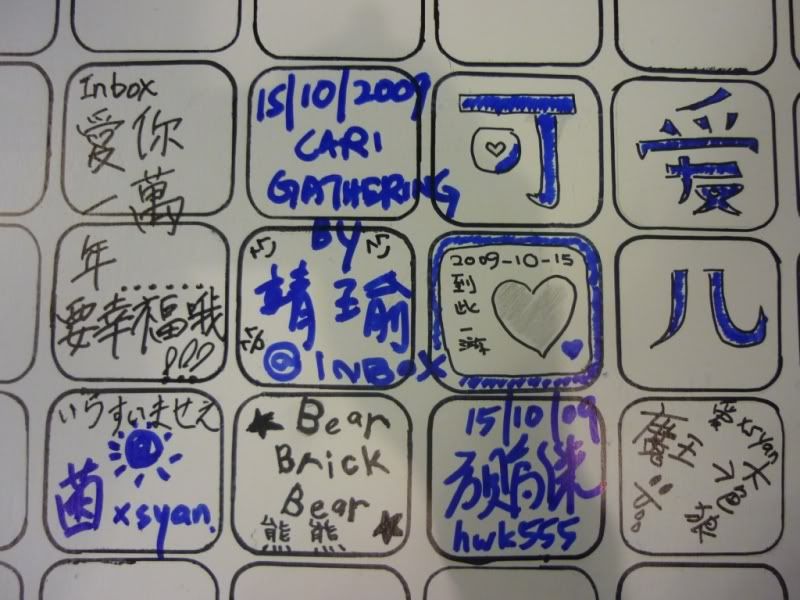 Inbox
愛你
一萬
年
要幸福哦
15/10/2009
CARI
GATHERING
BY
靖瑜
@ INBOX
可
爱
2009-10-15
到此一
儿
いらすいませえ
菌 xsyan.
Bear
Brick
Bear
熊 熊
15/10/09
hwk555
爱 xsyan